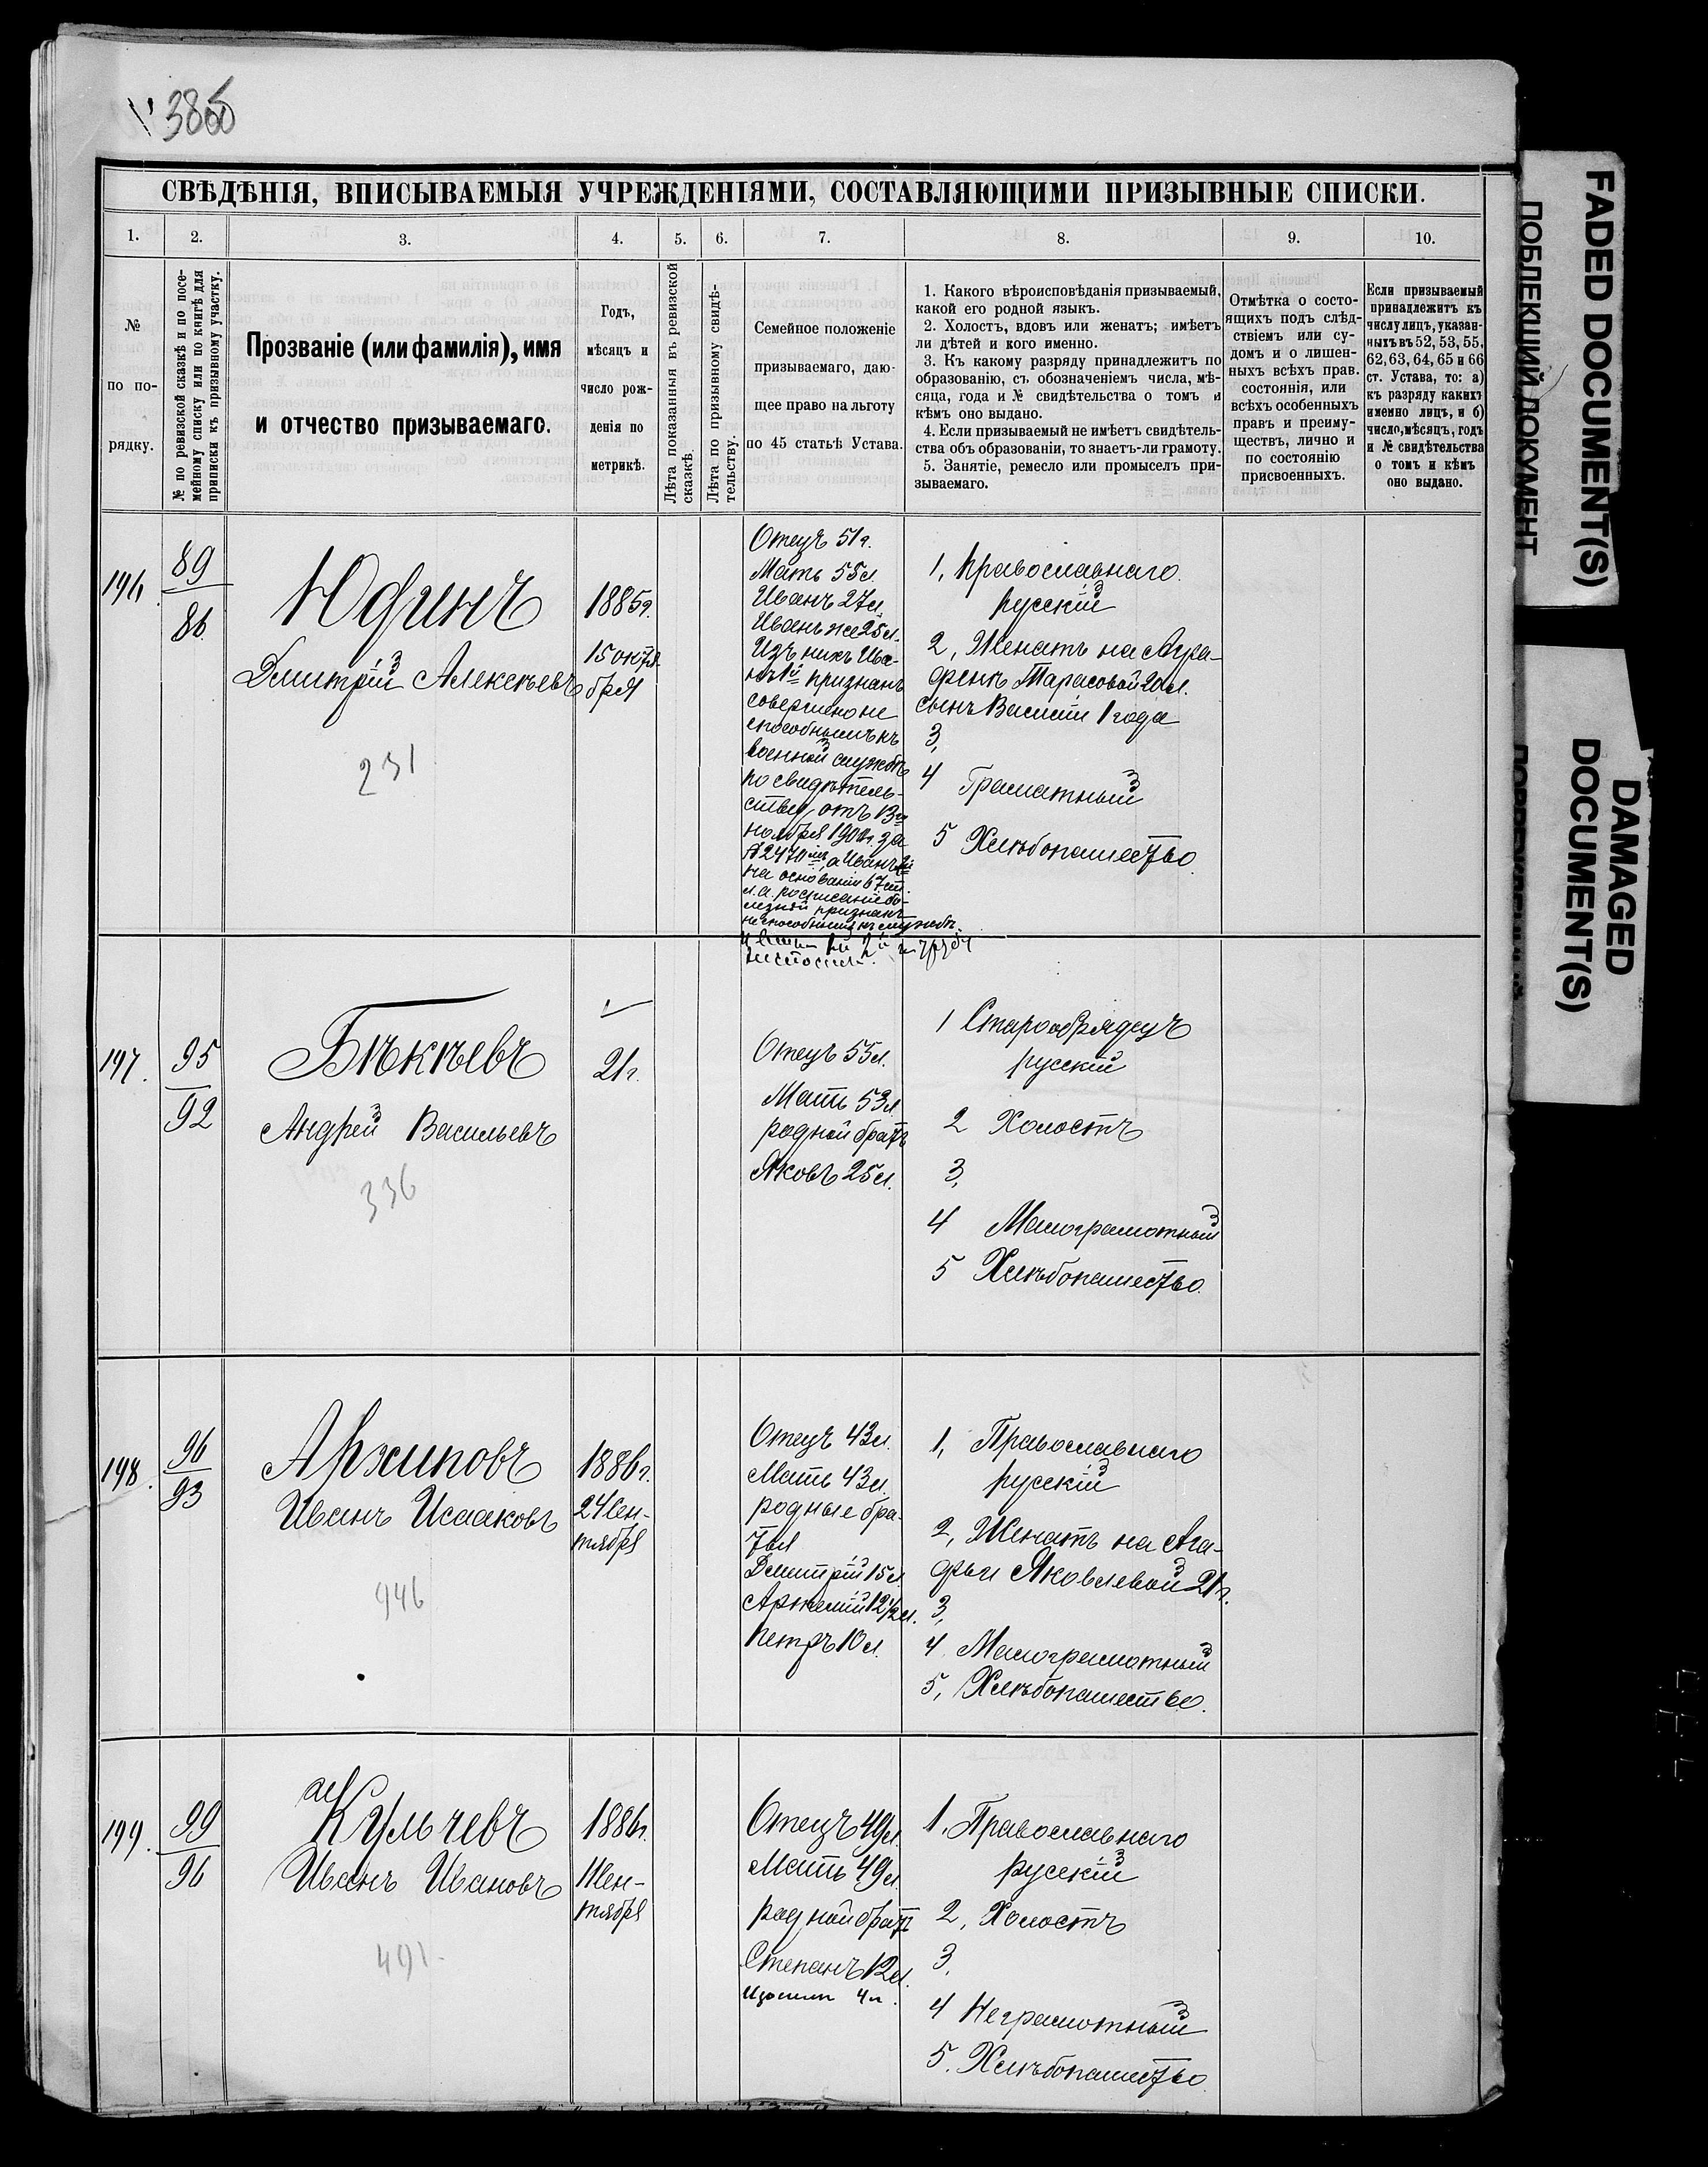 3866
СВѢДѢНІЯ, ВПИСЫВАЕМЫЯ УЧРЕЖДЕНІЯМИ, СОСТАВЛЯЮЩИМИ ПРИЗЫВНЫЕ СПИСКИ.
1. 2. 3. 4. 5. 6. 7. 8. 9. 10.
№
по по-
рядку.
№ по ревизской сказкѣ и по посе-
мейному списку или по книгѣ для
приписки къ призывному участку.
Прозваніе (или фамилія), имя
и отчество призываемаго.
Годъ,
мѣсяцъ и
число рож-
денія по
метрикѣ.
Лѣта показанныя въ ревизской
сказкѣ.
Лѣта по призывному свидѣ-
тельству.
Семейное положеніе
призываемаго, даю-
щее право на льготу
по 45 статьѣ Устава.
1. Какого вѣроисповѣданія призываемый,
какой его родной языкъ.
2. Холостъ, вдовъ или женатъ; имѣетъ
ли дѣтей и кого именно.
3. Къ какому разряду принадлежитъ по
образованію, съ обозначеніемъ числа, мѣ-
сяца, года и № свидѣтельства о томъ и
кѣмъ оно выдано.
4. Если призываемый не имѣетъ свидѣтель-
ства объ образованіи, то знаетъ-ли грамоту.
5. Занятіе, ремесло или промыселъ при-
зываемаго.
Отмѣтка о состо-
ящихъ подъ слѣд-
ствіемъ или су-
домъ и о лишен-
ныхъ всѣхъ прав.
состоянія, или
всѣхъ особенныхъ
правъ и преиму-
ществъ, лично и
по состоянію
присвоенныхъ.
Если призываемый
принадлежитъ къ
числу лицъ, указан-
ныхъ въ 52, 53, 55,
62, 63, 64, 65 и 66
ст. Устава, то: а)
къ разряду какихъ
именно лицъ, и б)
число, мѣсяцъ, годъ
и № свидѣтельства
о томъ и кѣмъ
оно выдано.
196.
89
86
Юдинъ
Дмитрій Алексѣевъ
231
1885г.
15 октя-
бря
Отецъ 51г.
Мать 55л.
Иванъ 27л.
Иванъ же 25л.
Изъ нихъ Ива-
нъ 1й признанъ
совершено не
способнымъ къ
военной службѣ
по свидѣтель-
ству отъ 13го
ноября 190 г. за
№ 2470 а Иванъ 2й
на основаніи 67 ст.
л. а. росписанія бо-
лезней признанъ
неспособнымъ къ службѣ.
1, Православнаго.
русскій
2, Женатъ на Агра-
фенѣ Тарасовой 20л.
сынъ Василій 1 года
3,
4 Граматный
5 Хлѣбопашество.
197.
95
92
Бѣкѣевъ
Андрей Васильевъ
336
21г.
Отецъ 55л.
Мать 53л.
родной братъ
Яковъ 25л.
1 Старообрядецъ
русскій
2 Холостъ
3,
4 Малограмотный
5 Хлѣбопашество.
198.
96
93
Архиповъ
Иванъ Исааковъ
946
1886г.
24 Сен-
тября
Отецъ 43л.
Мать 43л.
родные бра-
тья
Дмитрій 15л.
Артемій 12½л.
Петръ 10л.
1, Православнаго
русскій
2, Женатъ на Ага-
фьи Яковлевой 21г.
3,
4 Малограмотный
5, Хлѣбопашество.
199.
99
96
Кульчевъ
Иванъ Ивановъ
491
1886г.
1 Сен-
тября
Отецъ 49л.
Мать 49л.
родной братъ
Степанъ 12л.
1, Православнаго
русскій
2, Холостъ
3,
4 Неграмотный
5. Хлѣбопашество
FADED DOCUMENT(S)
ПОБЛЕКШИЙ ДОКУМЕНТ
DAMAGED
DOCUMENT(S)